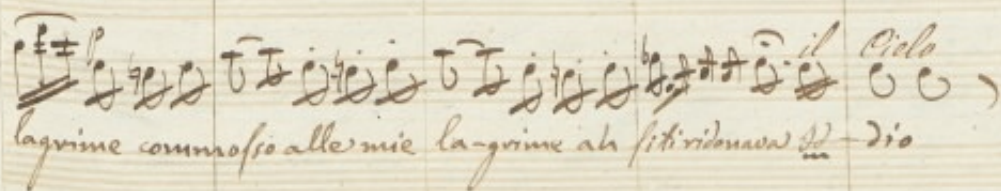 il Cielo
lagrime commosso alle mie la-grime ah siti ridonava Id-dio